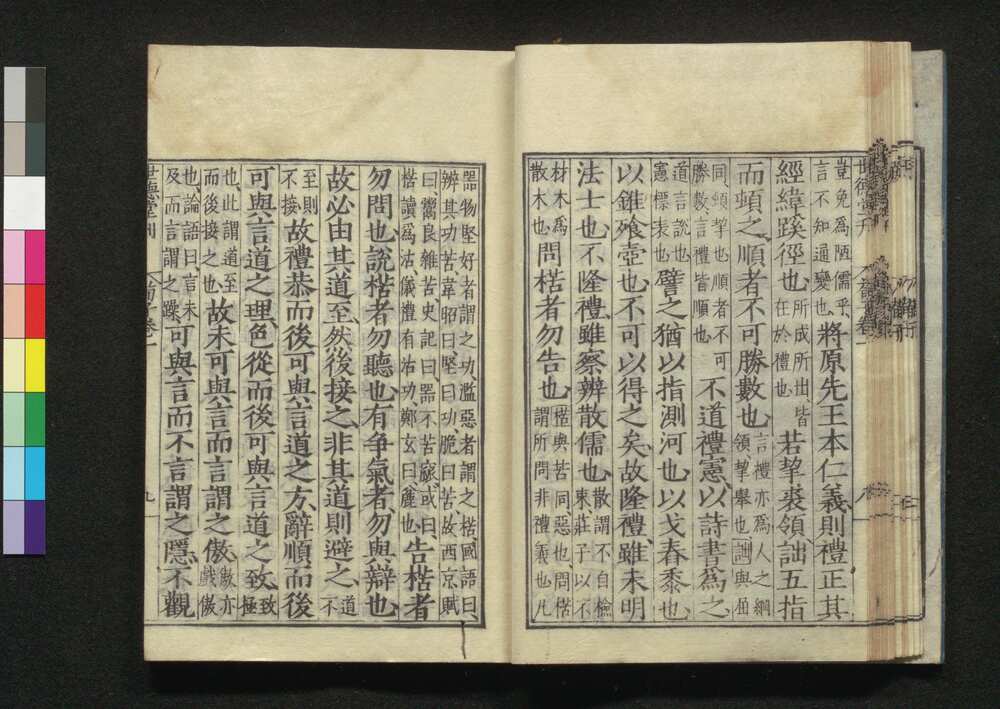 豈免爲陋儒乎言不知通變也將原先王本仁義則禮正其
經緯蹊徑也所成所出皆在於禮也若挈裘領詘五指
而頓之順者不可勝數也言禮亦爲人之綱領挈舉也詘與屈
同頓挈也順者不可勝數言禮皆順也不道禮憲以詩書爲之
道言說也憲標表也譬之猶以指測河也以戈舂黍也
以錐飡壺也不可以得之矣故隆禮雖未明
法士也不隆禮雖察辨散儒也散謂不自檢束莊子以不
材木爲散木也問楛者勿告也楛與苦同惡也問楛謂所問非禮義也凡
器物堅好者謂之功濫惡者謂之楛國語曰辨其功苦韋昭曰堅曰功脆曰苦故西京賦
曰鬻良雜苦史記曰器不苦窳或曰楛讀爲沽儀禮有沽功鄭玄曰麤也告楛者
勿問也說楛者勿聽也有争氣者勿與辯也
故必由其道至然後接之非其道則避之道不
至則不接故禮恭而後可與言道之方辭順而後
可與言道之理色從而後可與言道之致致極
也此謂道至而後接之也故未可與言而言謂之傲傲亦戲傲
也論語曰言未及而言謂之躁可與言而不言謂之隱不觀
世德堂刊 荀子卷一 九